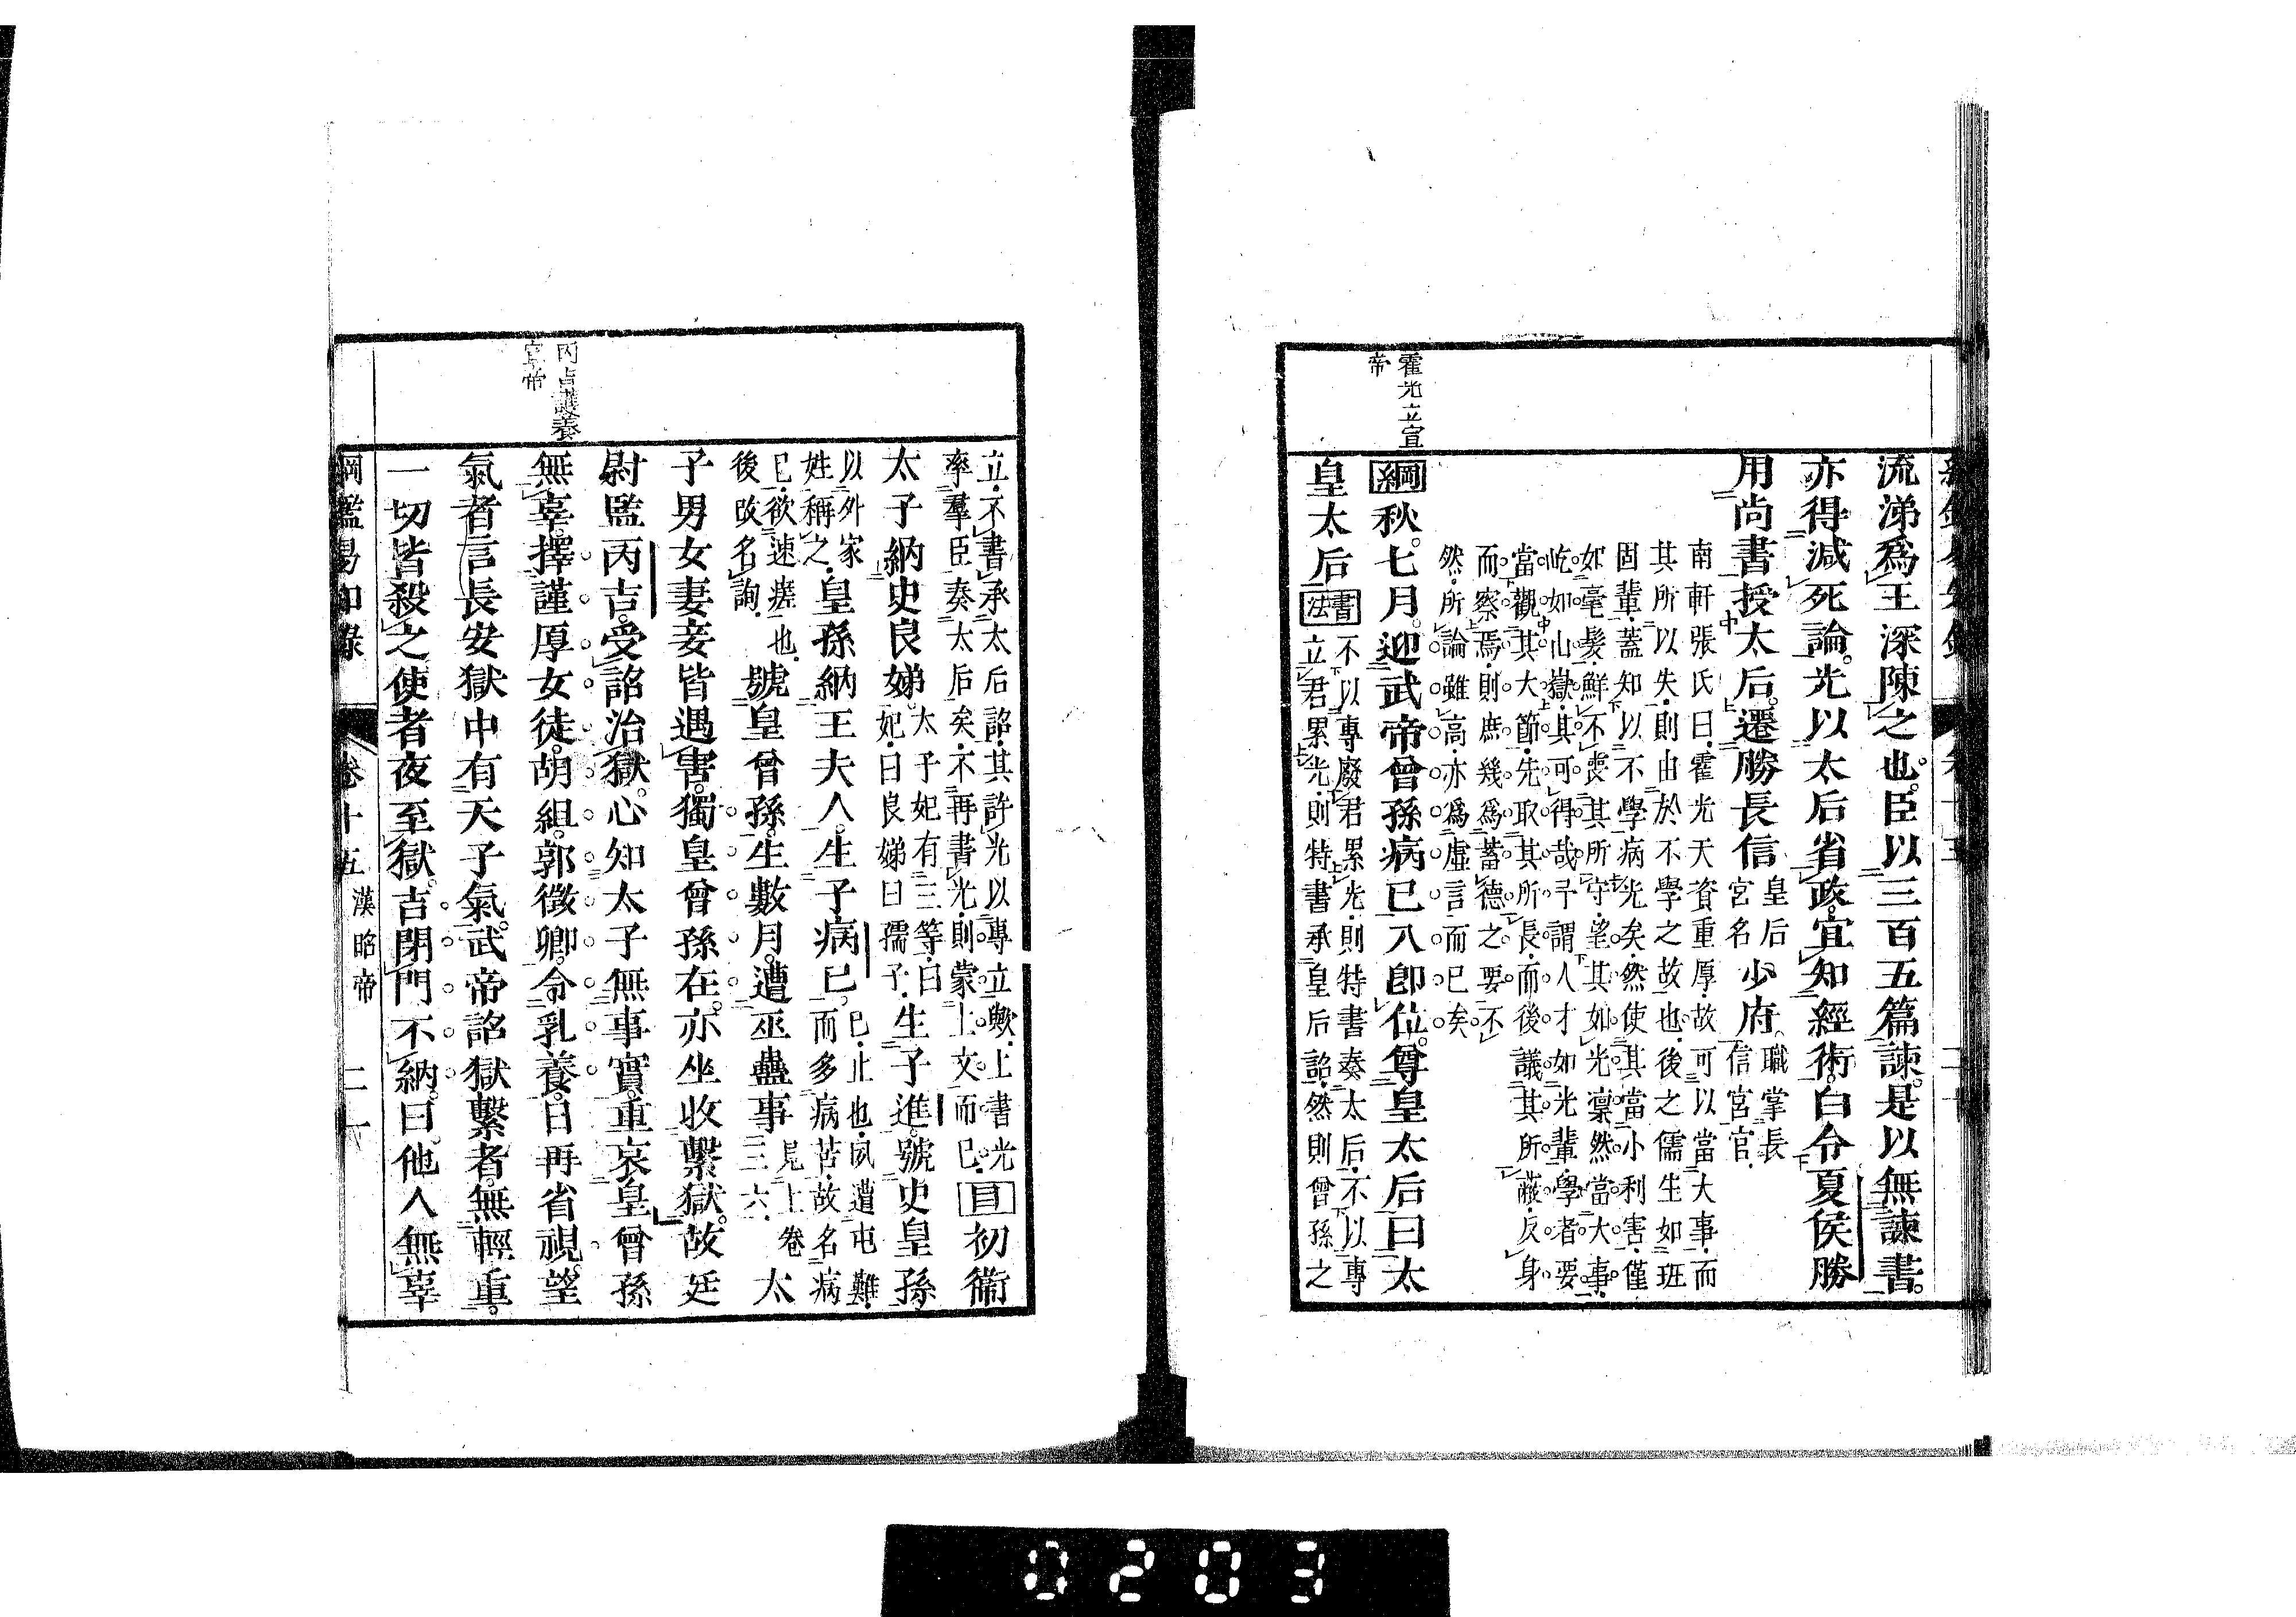 霍光立宣
帝
流涕爲王深陳之也。臣以三百五篇諫。是以無諫書。
亦得減死論。光以太后省政。宜知經術。白令夏侯勝
用尚書授太后。遷勝長信
皇后
宮名
少府。
職掌長
信宮官。
南軒張氏曰。霍光天資重厚。故可以當大事。而
其所以失。則由於不學之故也。後之儒生如班
固輩。蓋知以不學病光矣。然使其當小利害。僅
如毫髮。鮮不喪其所守。望其如光凜然當大事。
屹如山嶽。其可得哉。予謂人才如光輩。學者要
當觀其大節。先取其所長。而後議其所蔽。反身
而察焉。則庶幾爲蓄德之要。不
然。所論雖高。亦爲虛言而已矣
綱秋。七月。迎武帝曾孫病已入卽位。尊皇太后曰太
皇太后
書法
不以專廢君累光。則特書奏太后。不以專
立君累光。則特書承皇后詔。然則曾孫之
丙吉護養
宣帝
立。不書承太后詔。其許光以專立歟。上書光
率羣臣奏太后矣。不再書光。則蒙上文而已。
目初衞
太子納史良娣。
太子妃有三等。曰
妃。曰良娣曰孺子。
生子進。號史皇孫。
以外家
姓稱之。
皇孫納王夫人。生子病已。
已。止也。夙遭屯難。
而多病苦。故名病
已。欲速瘥也。
後改名詢。
號皇曾孫。生數月。遭巫蠱事
見上卷
三六。
太
子男女妻妾皆遇害。獨皇曾孫在。亦坐收繫獄。故廷
尉監丙吉。受詔治獄。心知太子無事實。重哀皇曾孫
無辜。擇謹厚女徒。胡組。郭徵卿。令乳養。日再省視。望
氣者言長安獄中有天子氣。武帝詔獄繫者。無輕重。
一切皆殺之使者夜至獄。吉閉門不納。曰。他人無辜
綱鑑易知錄
卷十五
漢昭帝
二一
0203